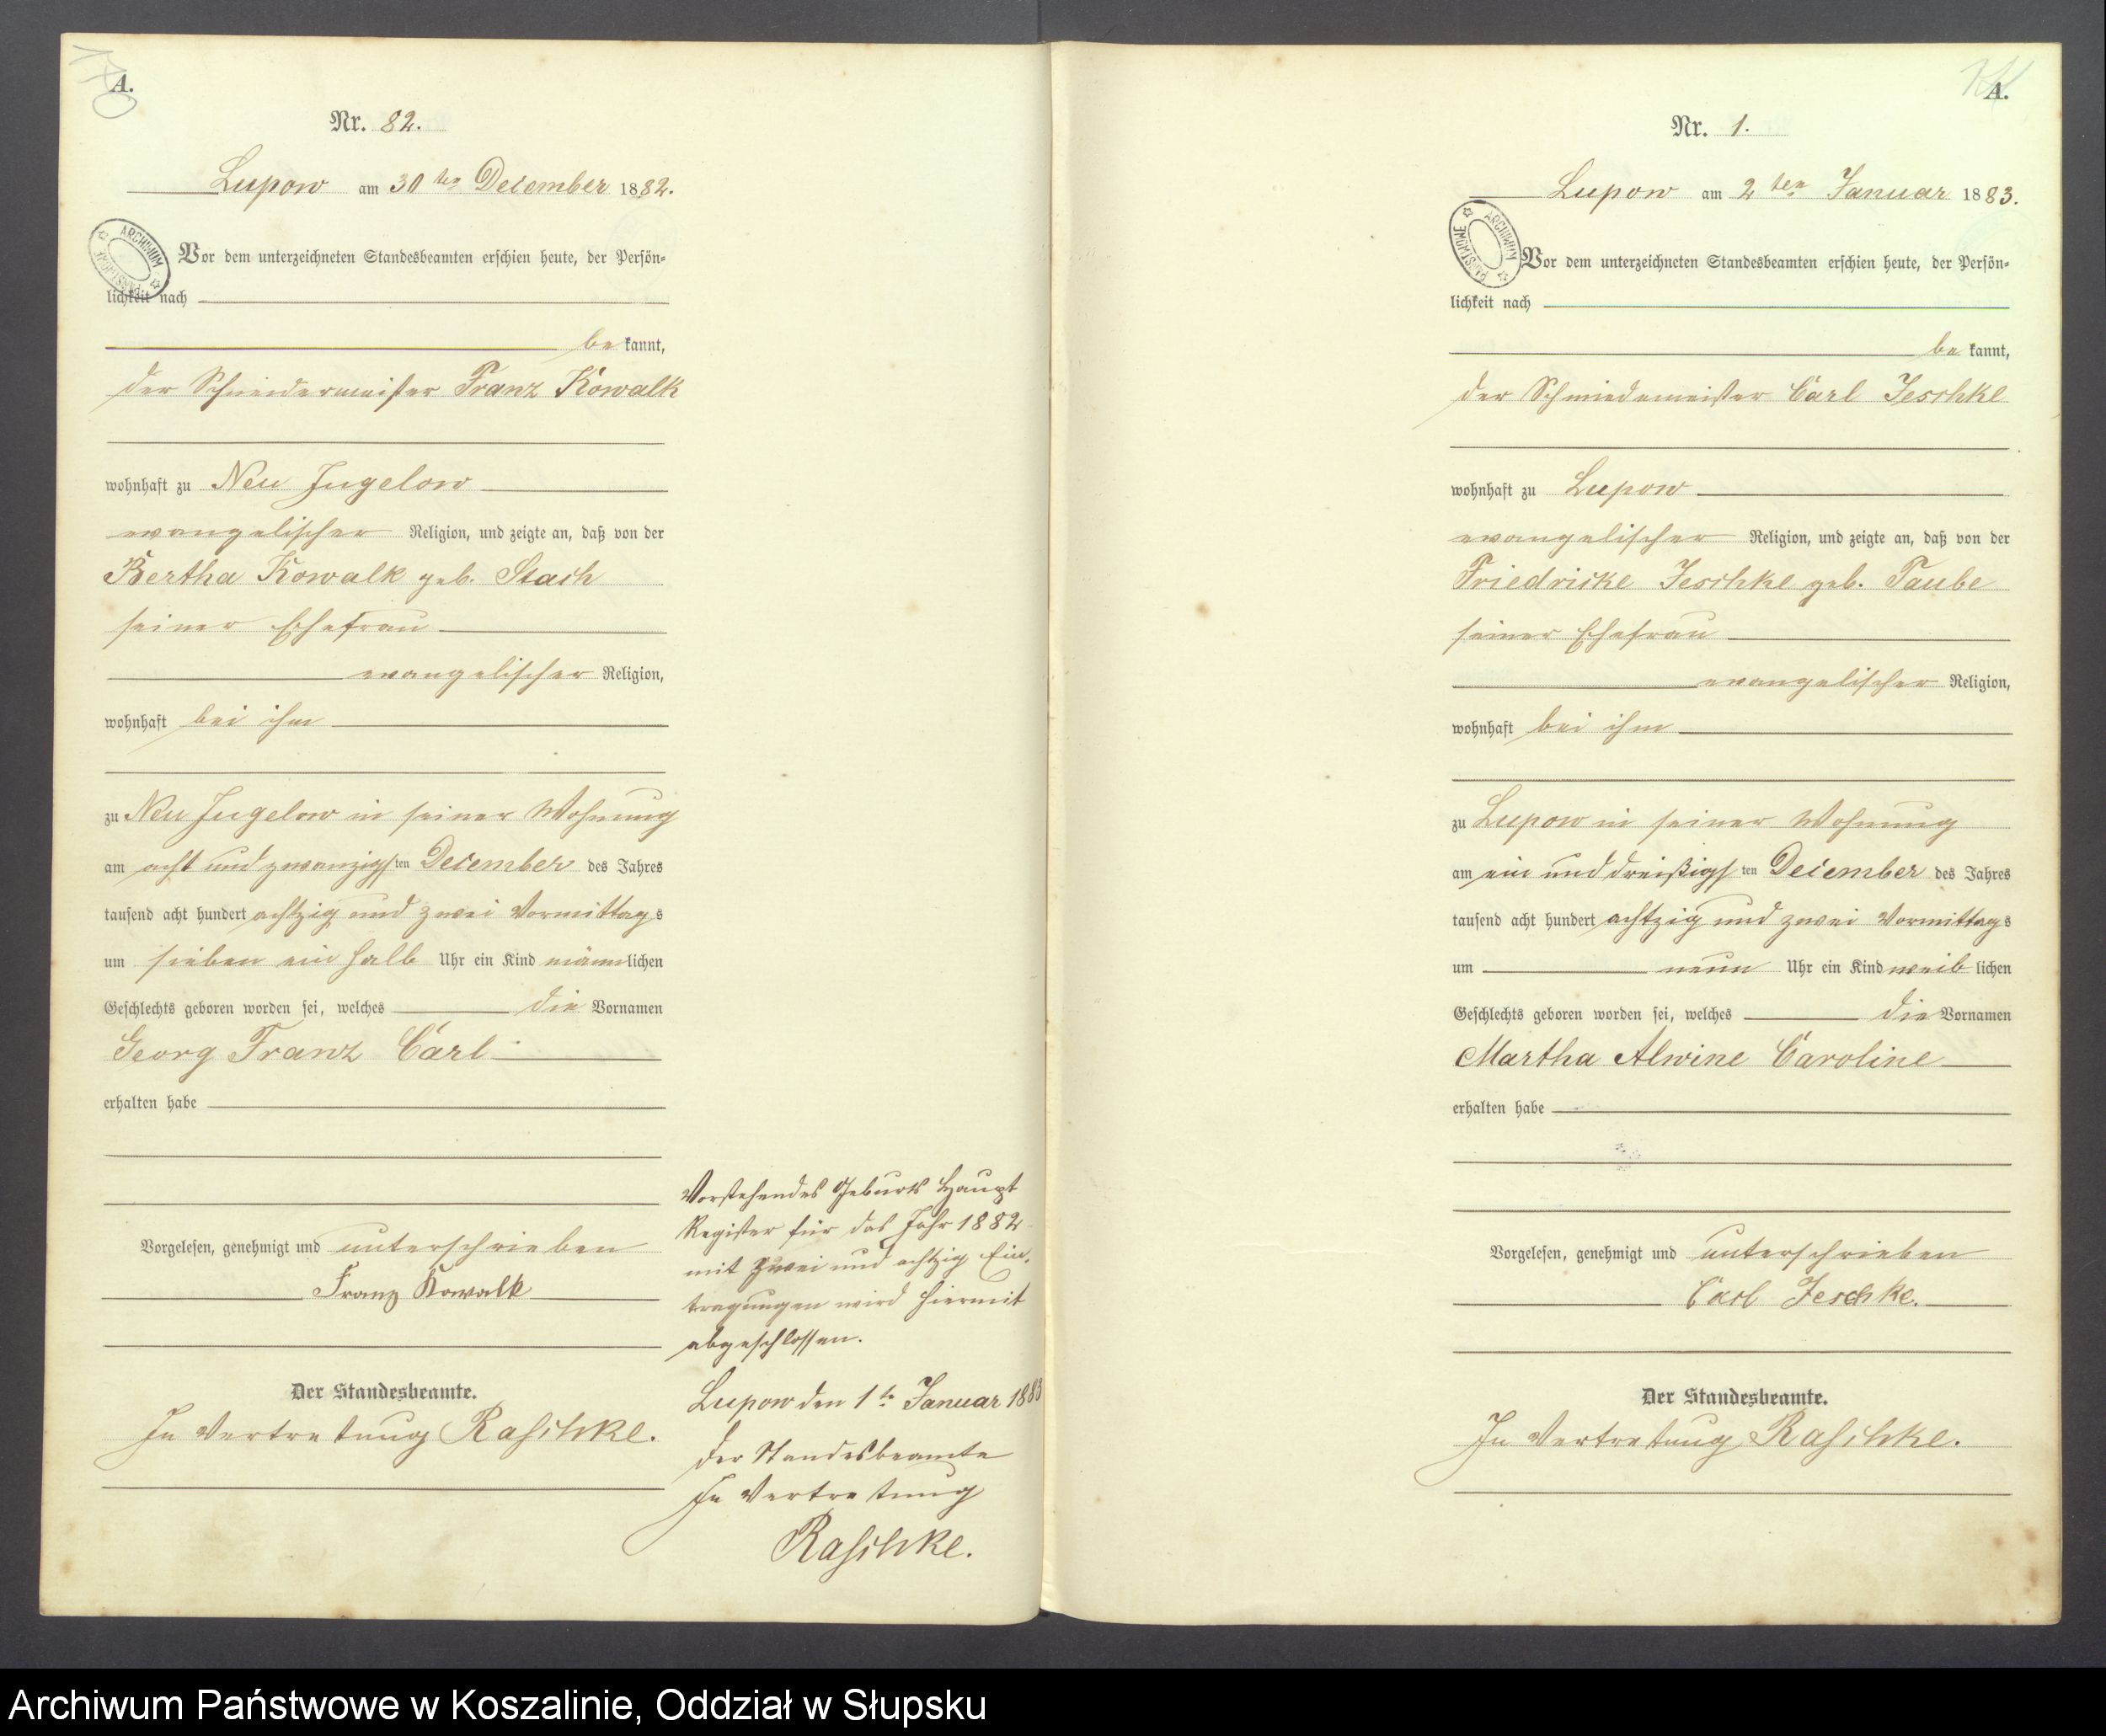 A.
Nr. 82.
Lupow am 30ten December 1882.
ARCHIWUM PAŃSTWOWE
Vor dem unterzeichneten Standesbeamten erschien heute, der Persön-
lichkeit nach
be kannt,
der Schneidermeister Franz Kowalk
wohnhaft zu Neu Jugelow
evangelischer Religion, und zeigte an, daß von der
Bertha Kowalk geb. Stach
seiner Ehefrau
evangelischer Religion,
wohnhaft bei ihm
zu Neu Jugelow in seiner Wohnung
am acht und zwanzigsten December des Jahres
tausend acht hundert achtzig und zwei Vormittags
um sieben ein halb Uhr ein Kind männlichen
Geschlechts geboren worden sei, welches die Vornamen
Georg Franz Carl
erhalten habe
Vorgelesen, genehmigt und unterschrieben
Franz Kowalk
Der Standesbeamte.
In Vertretung Raschke.
Vorstehendes Geburts Haupt
Register für das Jahr 1882
mit zwei und achtzig Ein-
tragungen wird hiermit
abgeschlossen.
Lupow den 1te Januar 1883
Der Standesbeamte
In Vertretung
Raschke.
A.
Nr. 1.
Lupow am 2ten Januar 1883.
ARCHIWUM PAŃSTWOWE
Vor dem unterzeichneten Standesbeamten erschien heute, der Persön-
lichkeit nach
be kannt,
der Schmiedemeister Carl Jeschke
wohnhaft zu Lupow
evangelischer Religion, und zeigte an, daß von der
Friedricke Jeschke geb. Taube
seiner Ehefrau
evangelischer Religion,
wohnhaft bei ihm
zu Lupow in seiner Wohnung
am ein und dreißigsten December des Jahres
tausend acht hundert achtzig und zwei Vormittags
um neun Uhr ein Kind weiblichen
Geschlechts geboren worden sei, welches die Vornamen
Martha Alwine Caroline
erhalten habe
Vorgelesen, genehmigt und unterschrieben
Carl Jeschke.
Der Standesbeamte.
In Vertretung Raschke.
Archiwum Państwowe w Koszalinie, Oddział w Słupsku